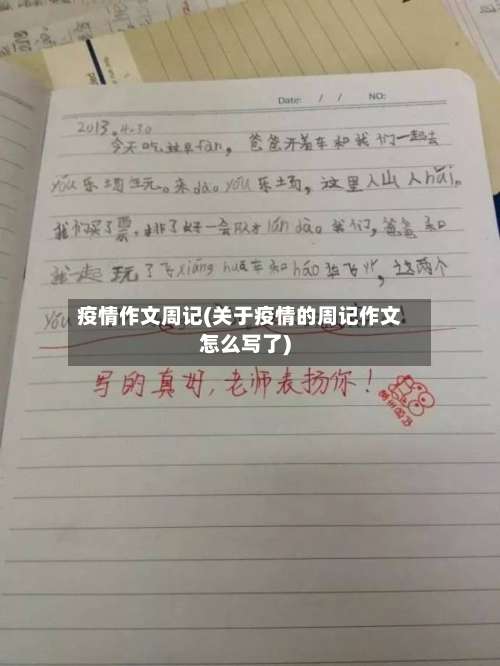 Date: / / NO:
2013.4.30
今天吃过早fan,爸爸开着车和我们一起去
yóu乐场玩。来dào yóu乐场,这里人山人hǎi。
我们买了票,排了好一会队才lún dào 我们,爸爸和
我一起玩了飞xiáng huá车和hǎo 华飞
这两个
yóu
疫情作文周记(关于疫情的周记作文
怎么写了)
写的真好,老师表扬你!